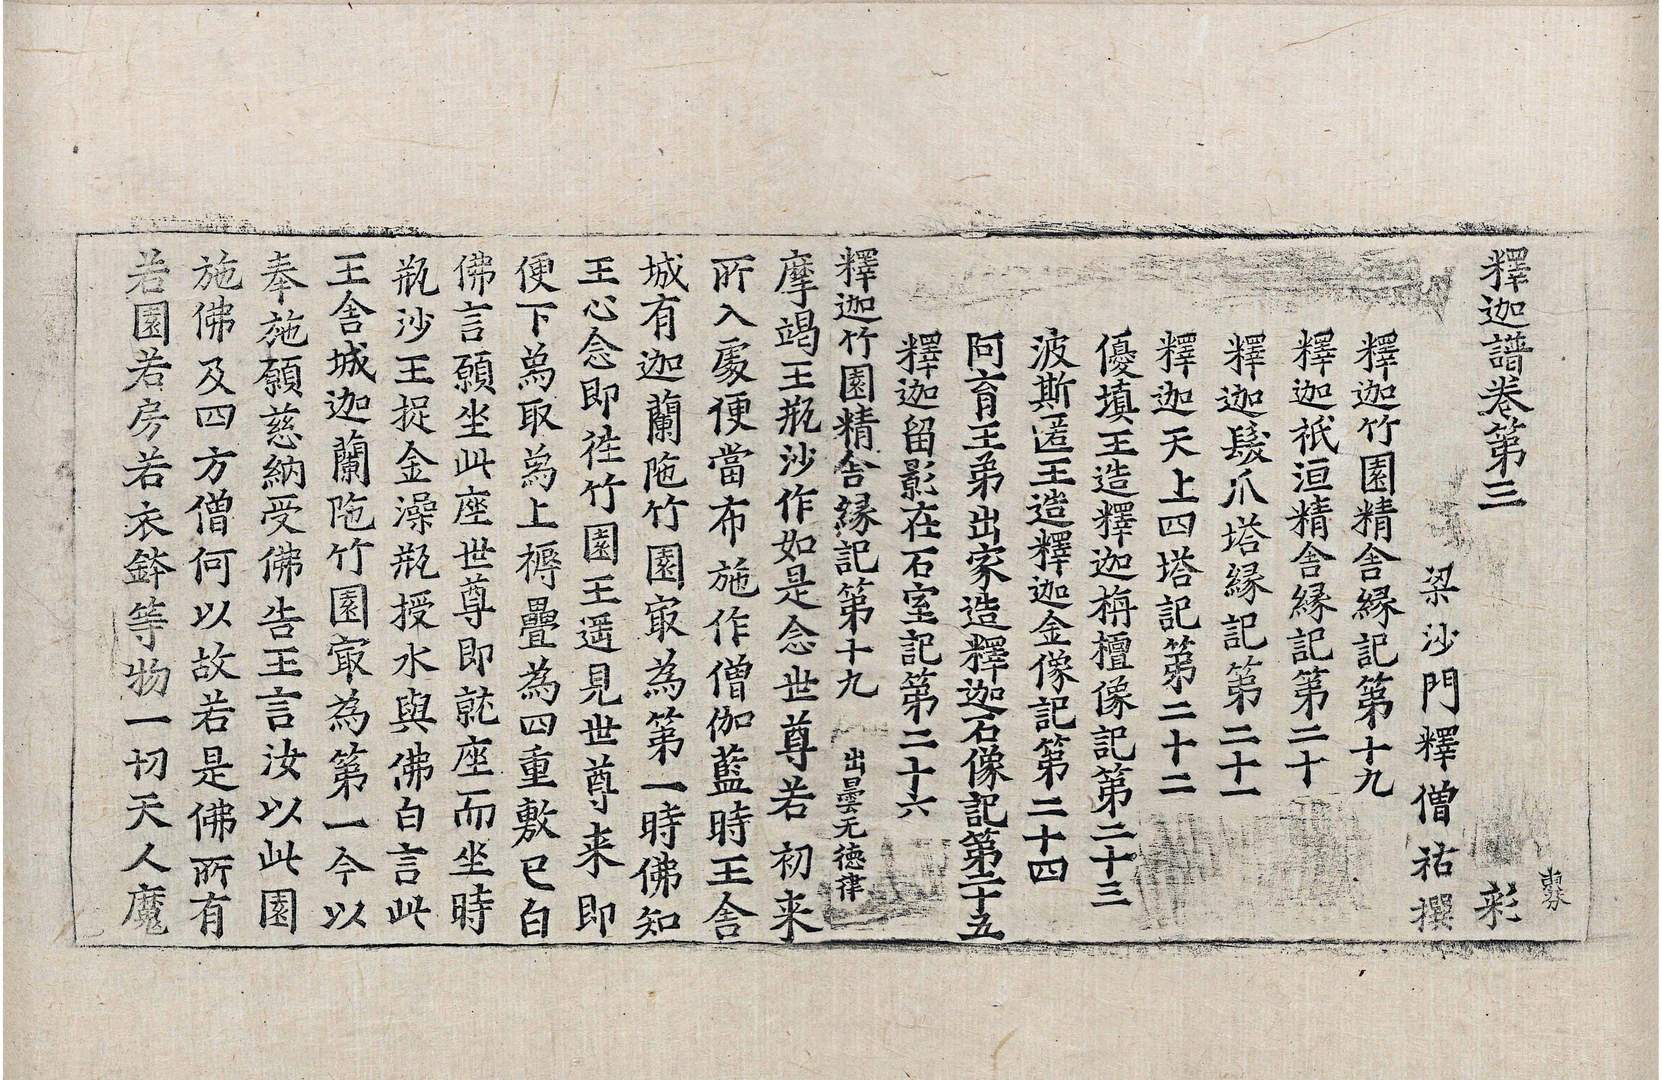 釋迦譜卷第三 彩
梁沙門釋僧祐撰
釋迦竹園精舎縁記第十九
釋迦祇洹精舎縁記第二十
釋迦髮爪塔縁記第二十一
釋迦天上四塔記第二十二
優填王造釋迦栴檀像記第二十三
波斯匿王造釋迦金像記第二十四
阿育王弟出家造釋迦石像記第二十五
釋迦留影在石室記第二十六
釋迦竹園精舎縁記第十九 出曇无徳律
摩竭王瓶沙作如是念世尊若初来
所入處便當布施作僧伽藍時王舎
城有迦蘭陁竹園冣為第一時佛知
王心念即徃竹園王遥見世尊来即
便下爲取爲上褥疊為四重敷已白
佛言願坐此座世尊即就座而坐時
瓶沙王捉金澡瓶授水與佛白言此
王舎城迦蘭陁竹園冣為第一今以
奉施願慈納受佛告王言汝以此園
施佛及四方僧何以故若是佛所有
若園若房若衣鉢等物一切天人魔